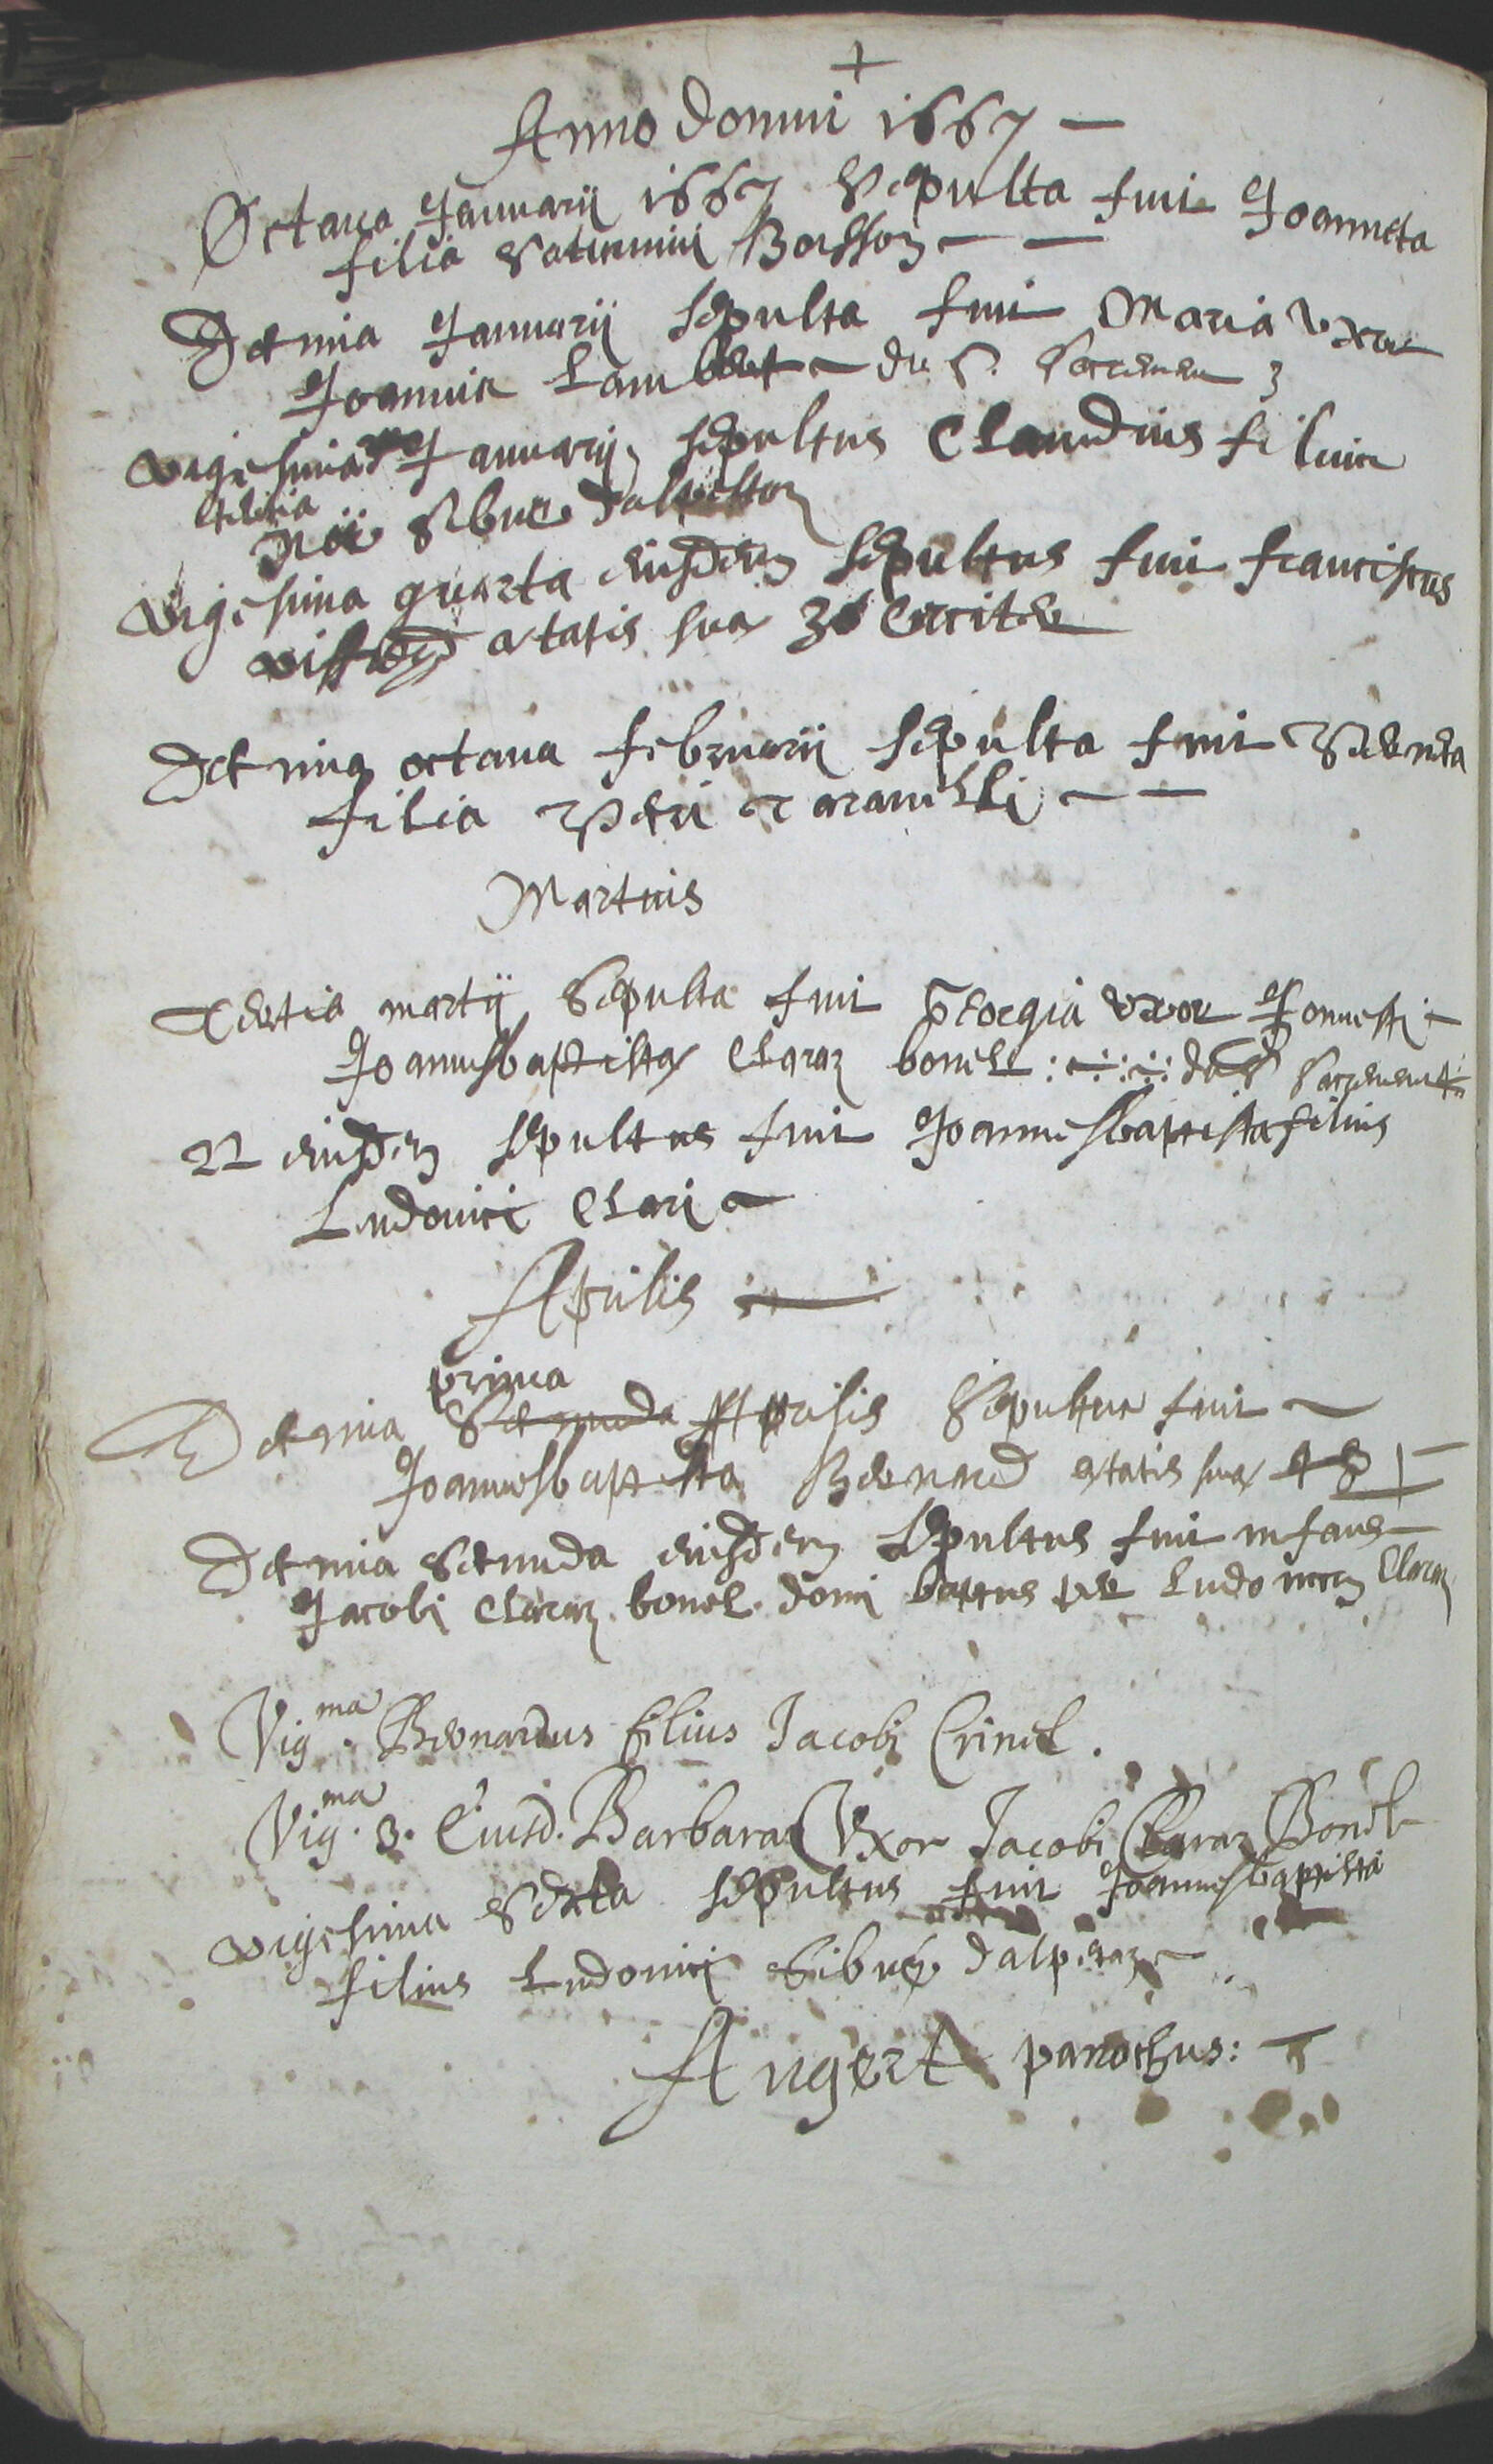 +
Anno domini 1667 —
Octaua Januarij 1667 Sepulta fuit Joanneta
filia Saturnini Bosson — —
Decima Januarij sepulta fuit Maria uxor
Joannis Lambert — de S.
vigesima Januarij sepultus Claudius filius
Sibué dalpettaz
vigesima quarta eiusdem sepultus fuit franciscus
ætatis suæ
Decima octaua februarij sepulta fuit
filia Petri —
Martius
Tertia martij Sepulta fuit Georgia uxor
Joannisbaptistæ Claraz bonel
22 eiusdem sepultus fuit Joannesbaptista filius
Ludouici Clari —
Aprilis —
prima
Decima Secunda Aprilis Sepultus fuit —
Joannesbaptista Bernard ætatis suæ
Decima Secunda eiusdem sepultus fuit infans
Jacobi Claraz bonel domi bap.tus per Ludouicum Claraz
Vig.ma Bernardus filius Jacobi Crinel.
Vig.ma 3. Eiusd. Barbara Vxor Jacobi Claraz Bonel
vigesima Sexta sepultus fuit Joannesbaptista
filius Ludouici Sibué dalpetaz —
Augert parochus: